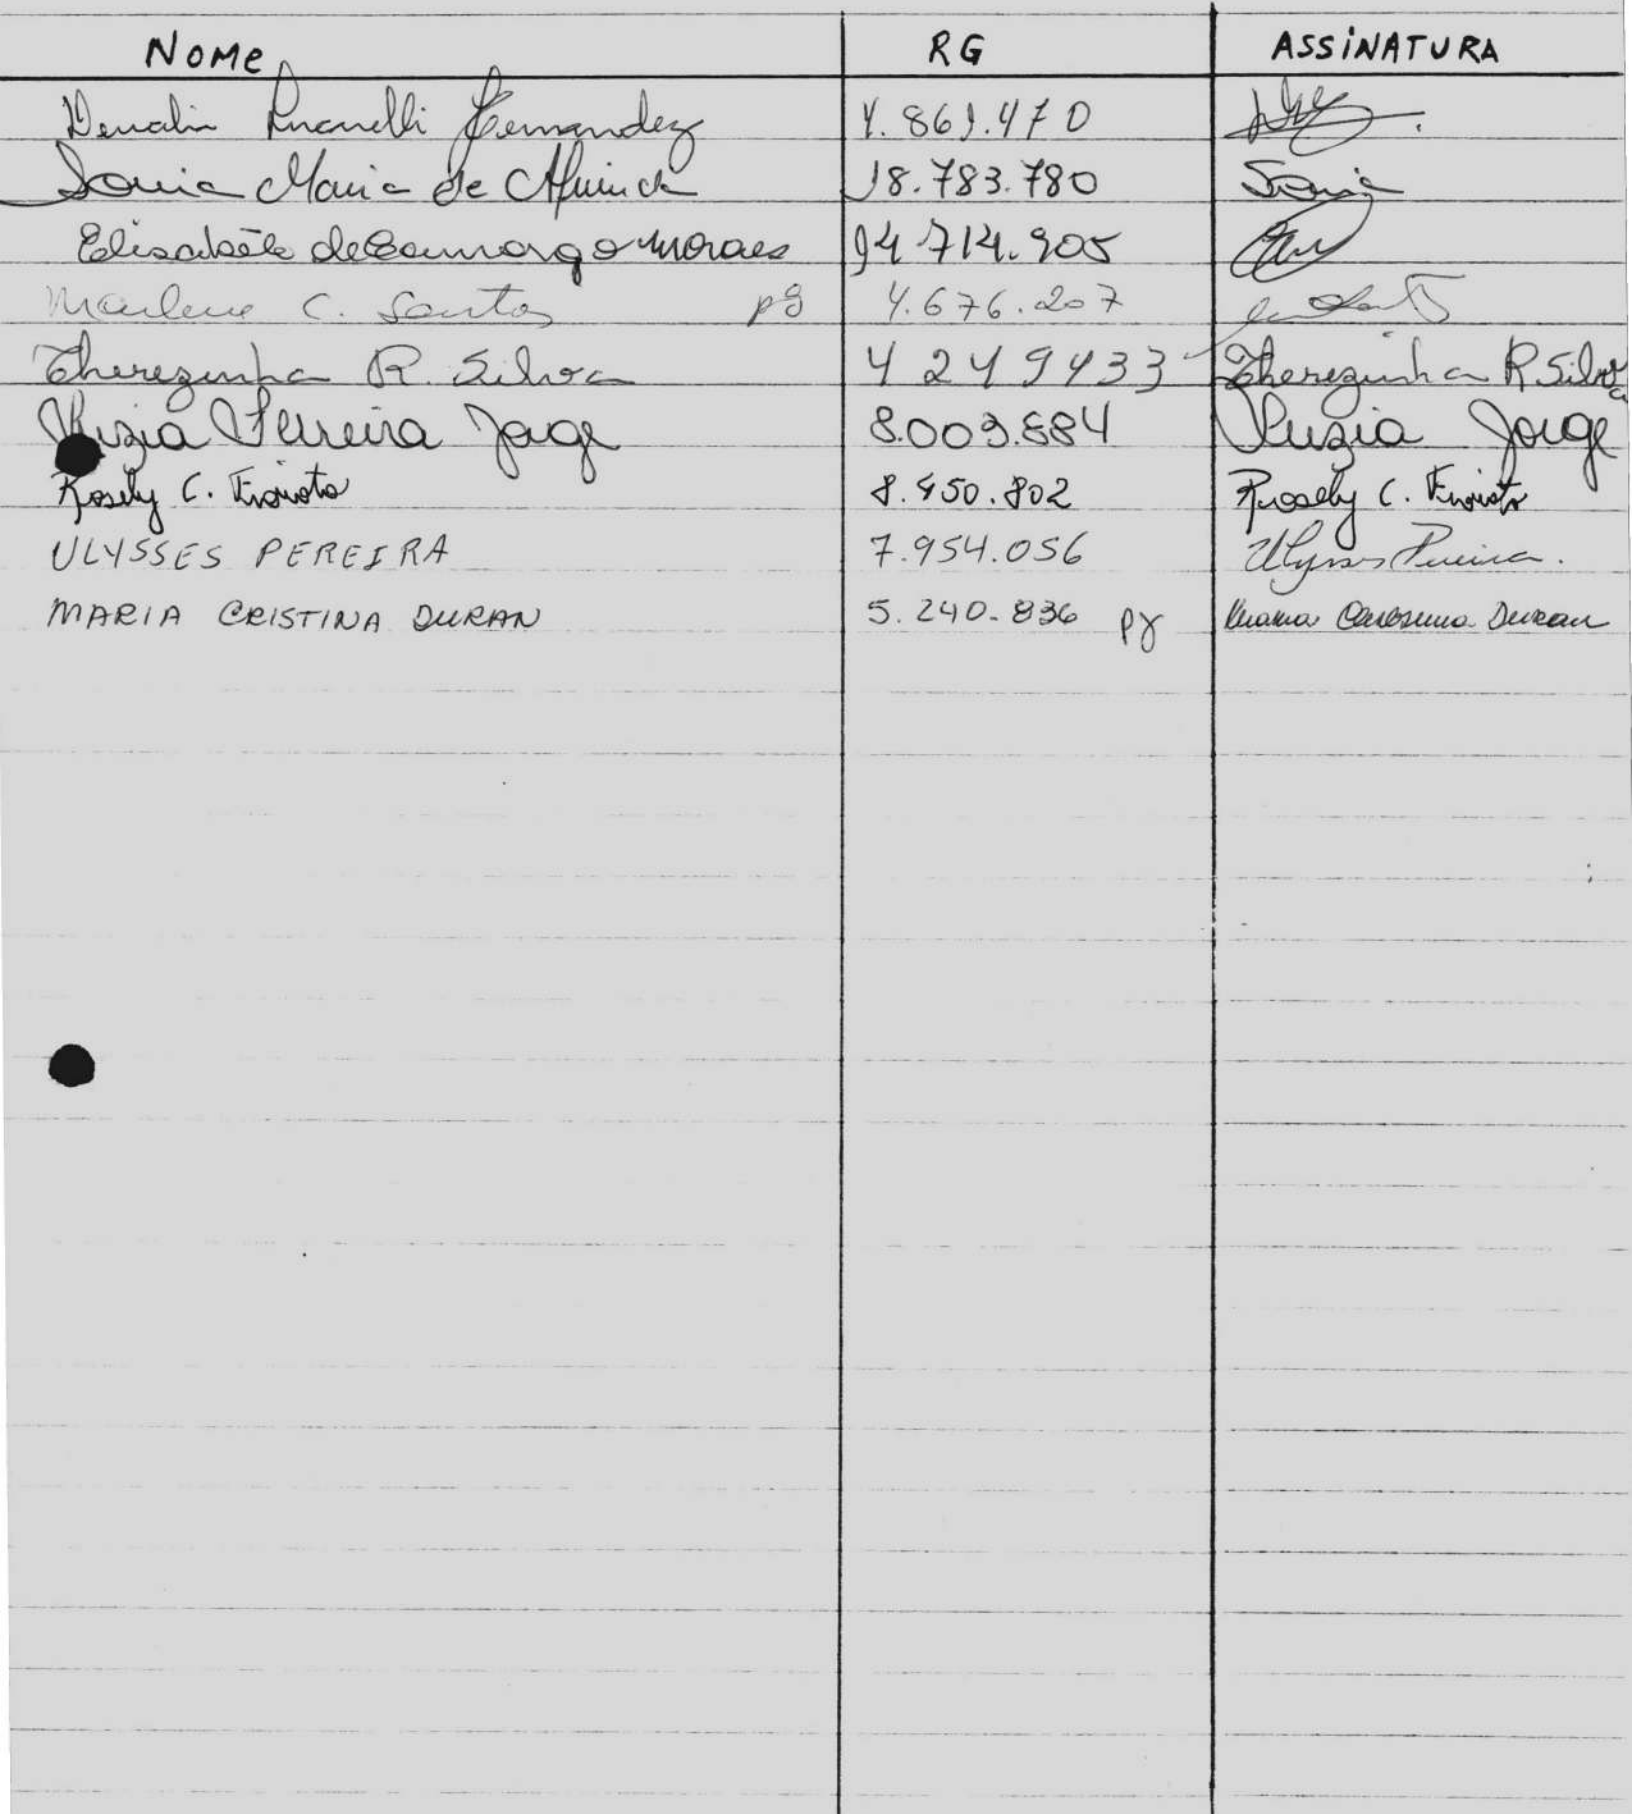 NOME RG ASSINATURA
Fernandez 4.869.470
Sonia Maria de Almeida 18.783.780 Sonia
Elisabete de Camargo Moraes 14.714.905
Marlene C. Santos pg 4.676.207
Therezinha R. Silva 4249433 Therezinha R Silva
Luzia Ferreira Jorge 8.003.884 Luzia Jorge
Rosely C. 8.450.802 Rosely C.
ULYSSES PEREIRA 7.954.056 Ulysses Pereira.
MARIA CRISTINA DURAN 5.240.836 pg Maria Cristina Duran